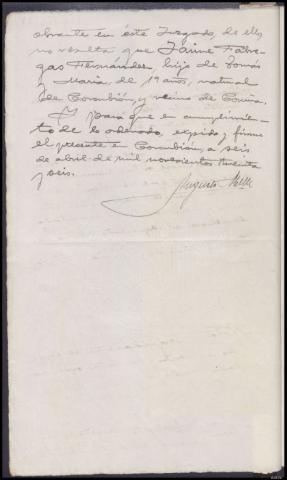 obrante en este Juzgado, de ello
no resulta que Jaime Fabre-
gas Fernández hijo de Tomás
y Maria de 19 años, natural
de Corcubión, y vecino de
Y para que en cumplimien-
to de lo ordenado, expido y firmo
el presente en Corcubión, a seis
de abril de mil novecientos treinta
y seis.
Augusto